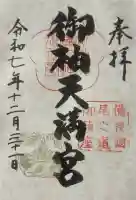 奉拝
備後國
尾之道
御袖天満宮
令和七年十二月二十一日